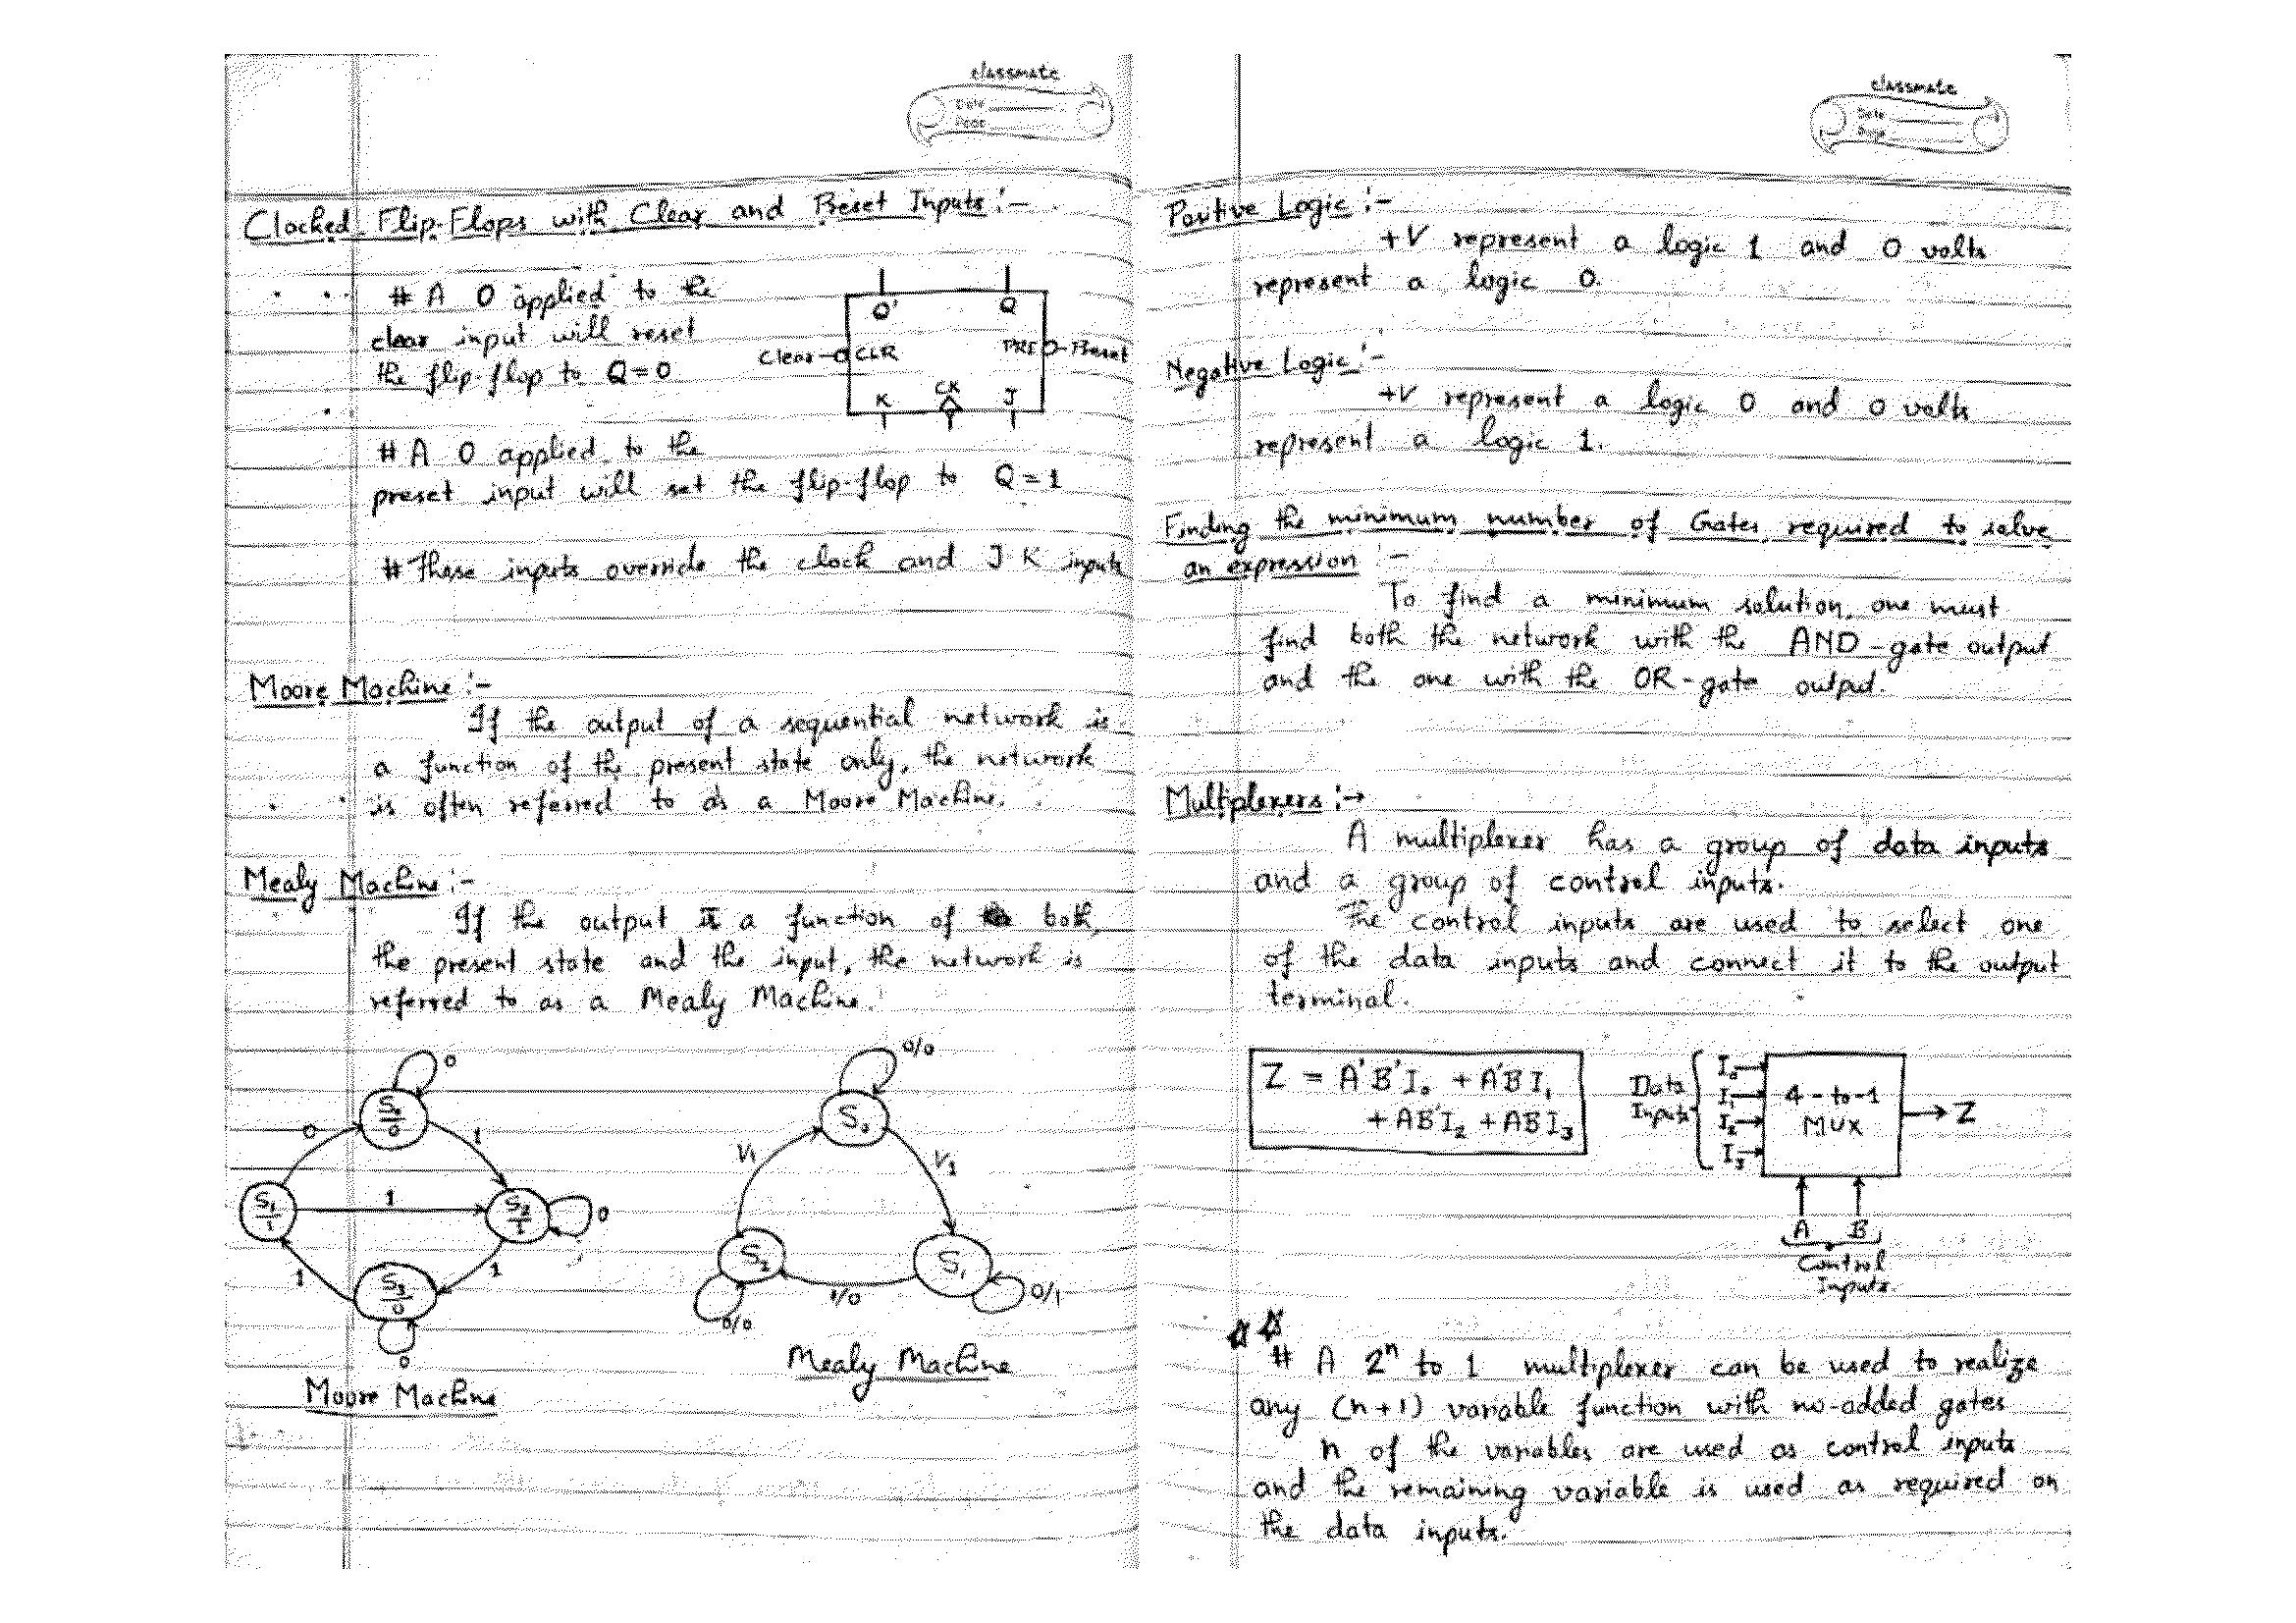 classmate
Date
Page
Clocked Flip-Flops with Clear and Preset Inputs :-
# A 0 applied to the
clear input will reset
the flip-flop to Q=0
Q' Q
Clear CLR PRE Preset
K CK J
# A 0 applied to the
preset input will set the flip-flop to Q = 1
# These inputs override the clock and J K inputs
Moore Machine :-
If the output of a sequential network is
a function of the present state only, the network
is often referred to as a Moore Machine.
Mealy Machine :-
If the output is a function of both,
the present state and the input, the network is
referred to as a Mealy Machine.
0
S₀/0
0
1
S₁/1
1
S₂/1
0
1
1
S₃/0
0
Moore Machine
0/0
S₀
1/1
1/1
S₂
S₁
1/0
0/1
0/0
Mealy Machine
classmate
Date
Page
Positive Logic :-
+V represent a logic 1 and 0 volts
represent a logic 0.
Negative Logic :-
+V represent a logic 0 and 0 volts
represent a logic 1.
Finding the minimum number of Gates required to solve
an expression :-
To find a minimum solution, one must
find both the network with the AND-gate output
and the one with the OR-gate output.
Multiplexers :→
A multiplexer has a group of data inputs
and a group of control inputs.
The control inputs are used to select one
of the data inputs and connect it to the output
terminal.
Z = A'B'I₀ + A'BI₁
+ AB'I₂ + ABI₃
Data
Inputs
I₀
I₁
I₂
I₃
4-to-1
MUX
Z
A B
Control
Inputs.
# A 2ⁿ to 1 multiplexer can be used to realize
any (n+1) variable function with no-added gates
n of the variables are used as control inputs
and the remaining variable is used as required on
the data inputs.